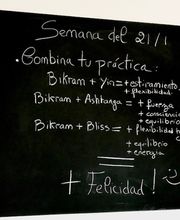 Semana del 21/1
• Combina tu práctica:
Bikram + Yin = + estiramiento
+ flexibilidad
Bikram + Ashtanga = + fuerza
+ consciencia
+ equilibrio
Bikram + Bliss = + flexibilidad
+ equilibrio
+ energía
+ Felicidad!